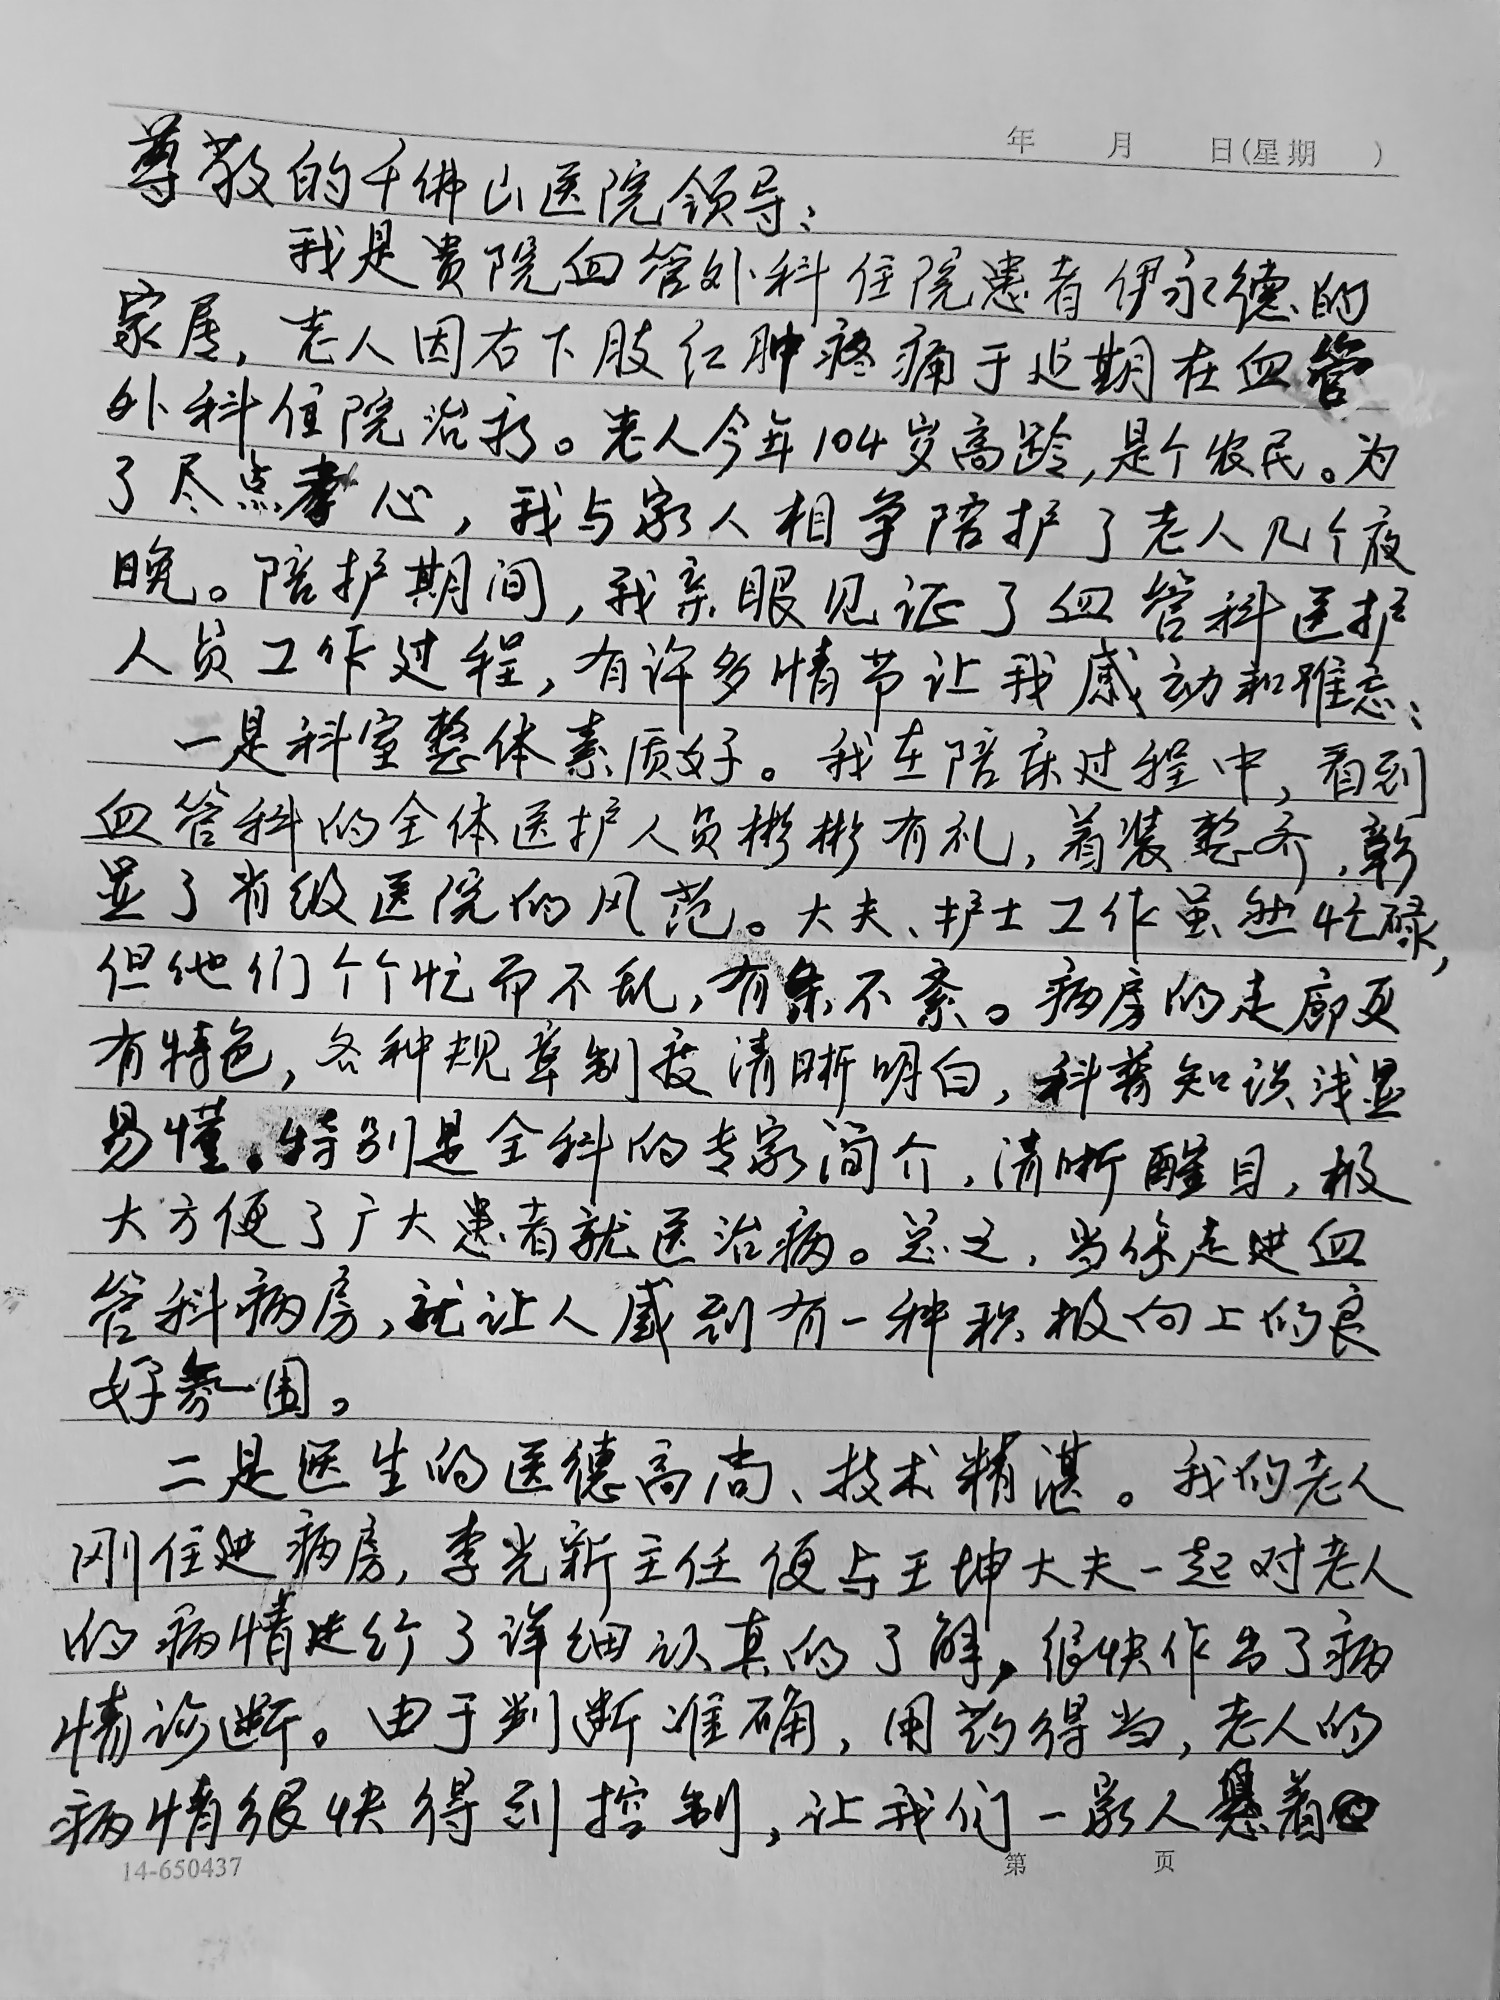 年 月 日(星期 )
尊敬的千佛山医院领导:
我是贵院血管外科住院患者伊永德的
家属,老人因右下肢红肿疼痛于近期在血管
外科住院治疗。老人今年104岁高龄,是个农民。为
了尽点孝心,我与家人相争陪护了老人几个夜
晚。陪护期间,我亲眼见证了血管科医护
人员工作过程,有许多情节让我感动和难忘:
一是科室整体素质好。我在陪床过程中,看到
血管科的全体医护人员彬彬有礼,着装整齐,彰
显了省级医院的风范。大夫、护士工作虽然忙碌,
但他们个个忙而不乱,有条不紊。病房的走廊更
有特色,各种规章制度清晰明白,科普知识浅显
易懂。特别是全科的专家简介,清晰醒目,极
大方便了广大患者就医治病。总之,当你走进血
管科病房,就让人感到有一种积极向上的良
好氛围。
二是医生的医德高尚、技术精湛。我的老人
刚住进病房,李光新主任便与王坤大夫一起对老人
的病情进行了详细认真的了解,很快作出了病
情诊断。由于判断准确,用药得当,老人的
病情很快得到控制,让我们一家人悬着
14-650437 第 页